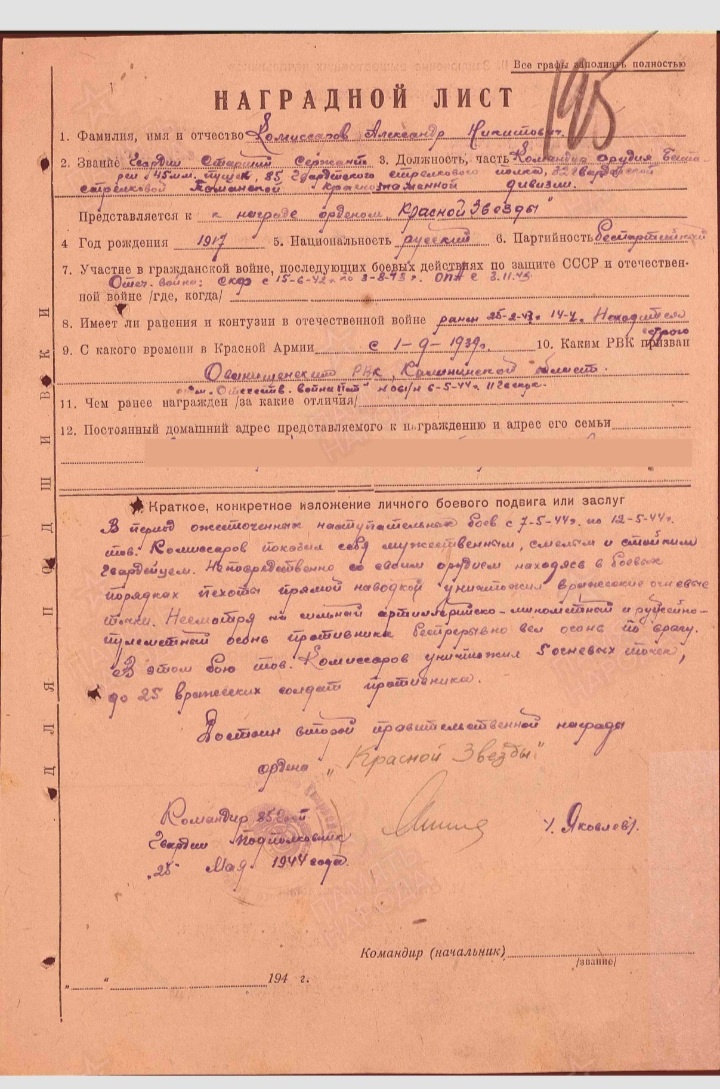 Все графы заполнять полностью
195
НАГРАДНОЙ ЛИСТ
1. Фамилия, имя и отчество Комиссаров Александр Никитович
2. Звание Гвардии Старший Сержант 3. Должность, часть Командир орудия Бата-
реи 45мм. пушек, 85 Гвардейского стрелкового полка, 32 Гвардейской
стрелковой Таманской краснознаменной дивизии.
Представляется к к награде орденом "Красной Звезды"
4 Год рождения 1917 5. Национальность русский 6. Партийность беспартийный
7. Участие в гражданской войне, последующих боевых действиях по защите СССР и отечествен-
Отеч. война: СКФ с 15-6-42г. по 3-8-43г. ОПА с 3.11.43
ной войне /где, когда/
8. Имеет ли ранения и контузии в отечественной войне ранен 25-2-43г.
9. С какого времени в Красной Армии с 1-9-1939г. 10. Каким РВК призван
РВК, Калининской области.
"Отечеств. война" 6-5-44г.
11. Чем ранее награжден /за какие отличия/
12. Постоянный домашний адрес представляемого к награждению и адрес его семьи
ДЛЯ ПОДШИВКИ
Краткое, конкретное изложение личного боевого подвига или заслуг
В период ожесточенных наступательных боев с 7-5-44г. по 12-5-44г.
тов. Комиссаров показал себя мужественным, смелым и стойким
Гвардейцем. Непосредственно со своим орудием находясь в боевых
порядках пехоты прямой наводкой уничтожил вражеские огневые
точки. Несмотря на сильный артиллерийско-минометный и ружейно-
пулеметный огонь противника беспрерывно вел огонь по врагу.
В этом бою тов. Комиссаров уничтожил 5 огневых точек,
до 25 вражеских солдат противника.
Достоин второй правительственной награды
ордена "Красной Звезды"
Командир 85
Гвардии Подполковник /Яковлев/.
"25" Мая 1944 года.
Командир (начальник)
/звание/
"___" 194 г.
ПАМЯТЬ НАРОДА